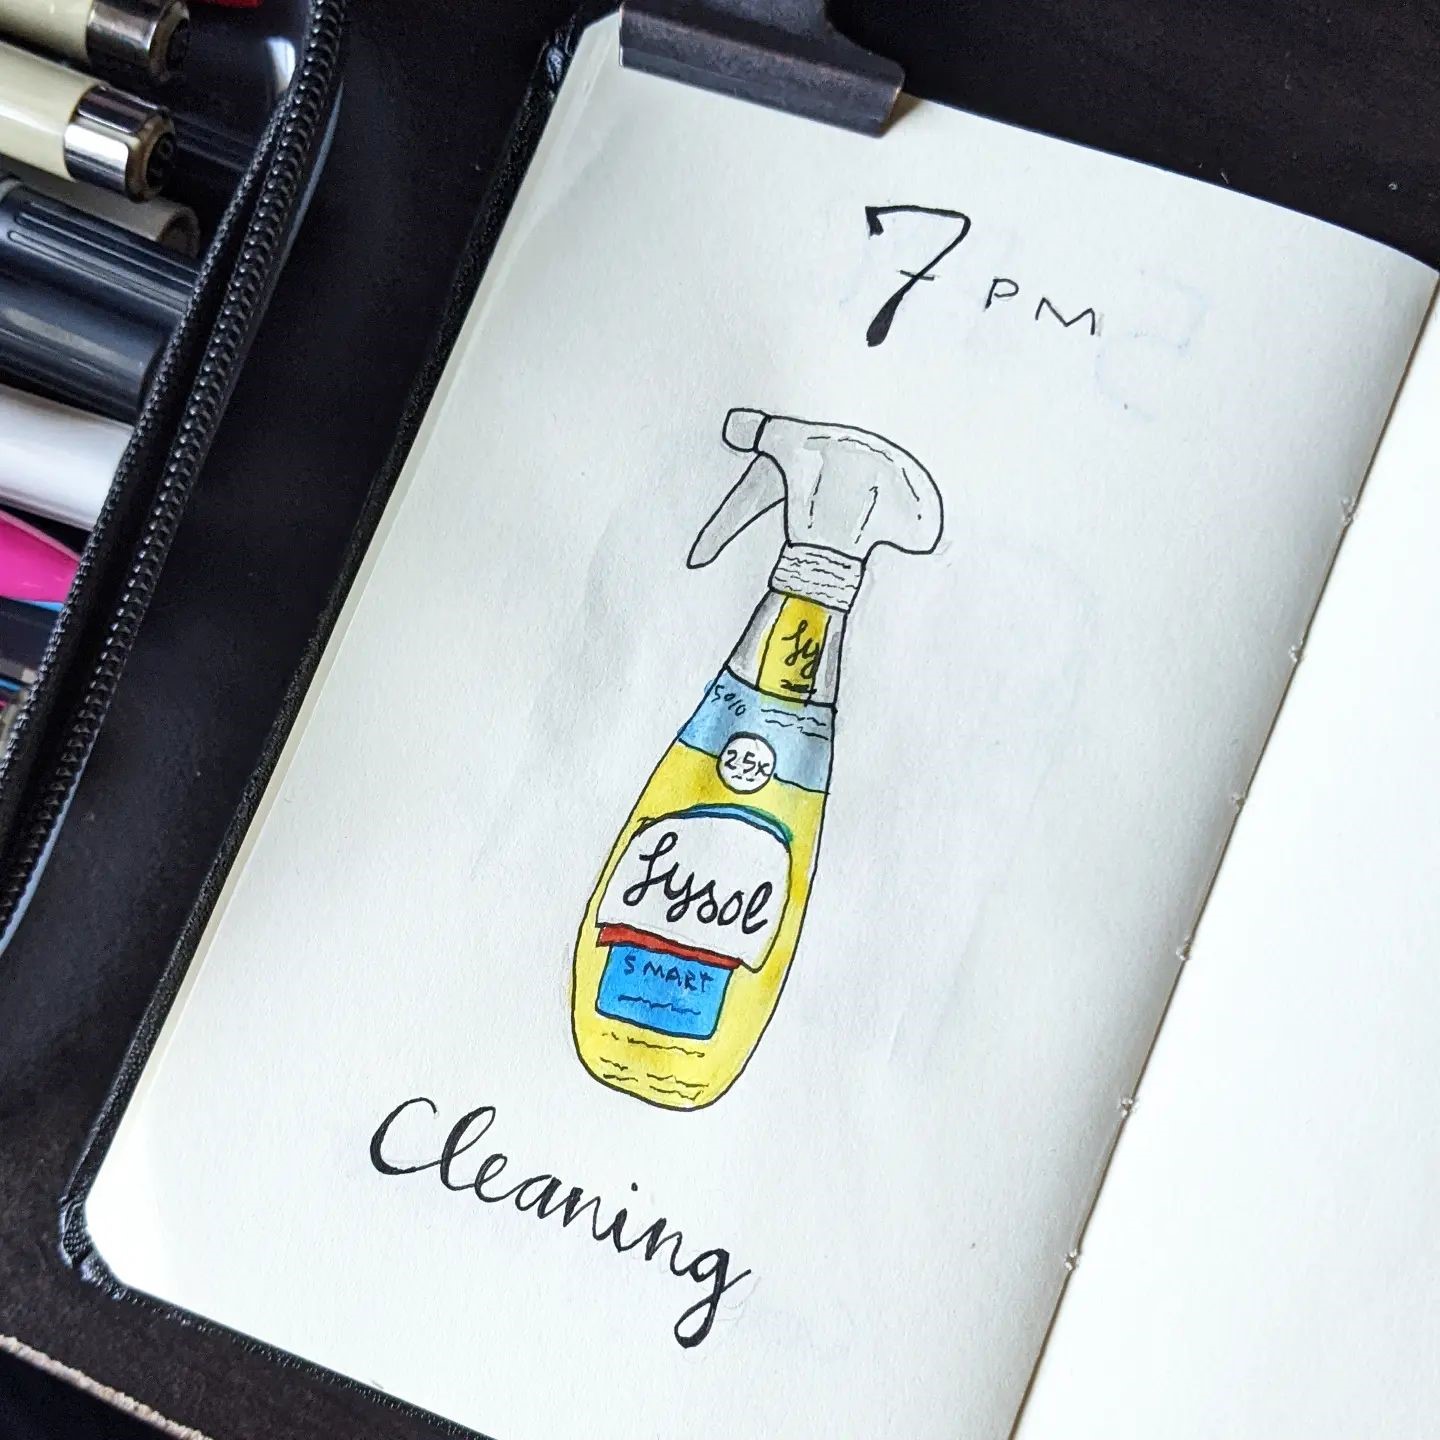 7 PM
Ly
50%
25x
Lysol
SMART
Cleaning